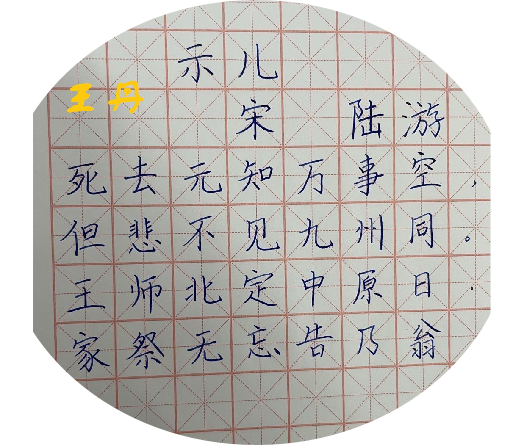 示儿
王丹
宋 陆游
死去元知万事空，
但悲不见九州同。
王师北定中原日，
家祭无忘告乃翁